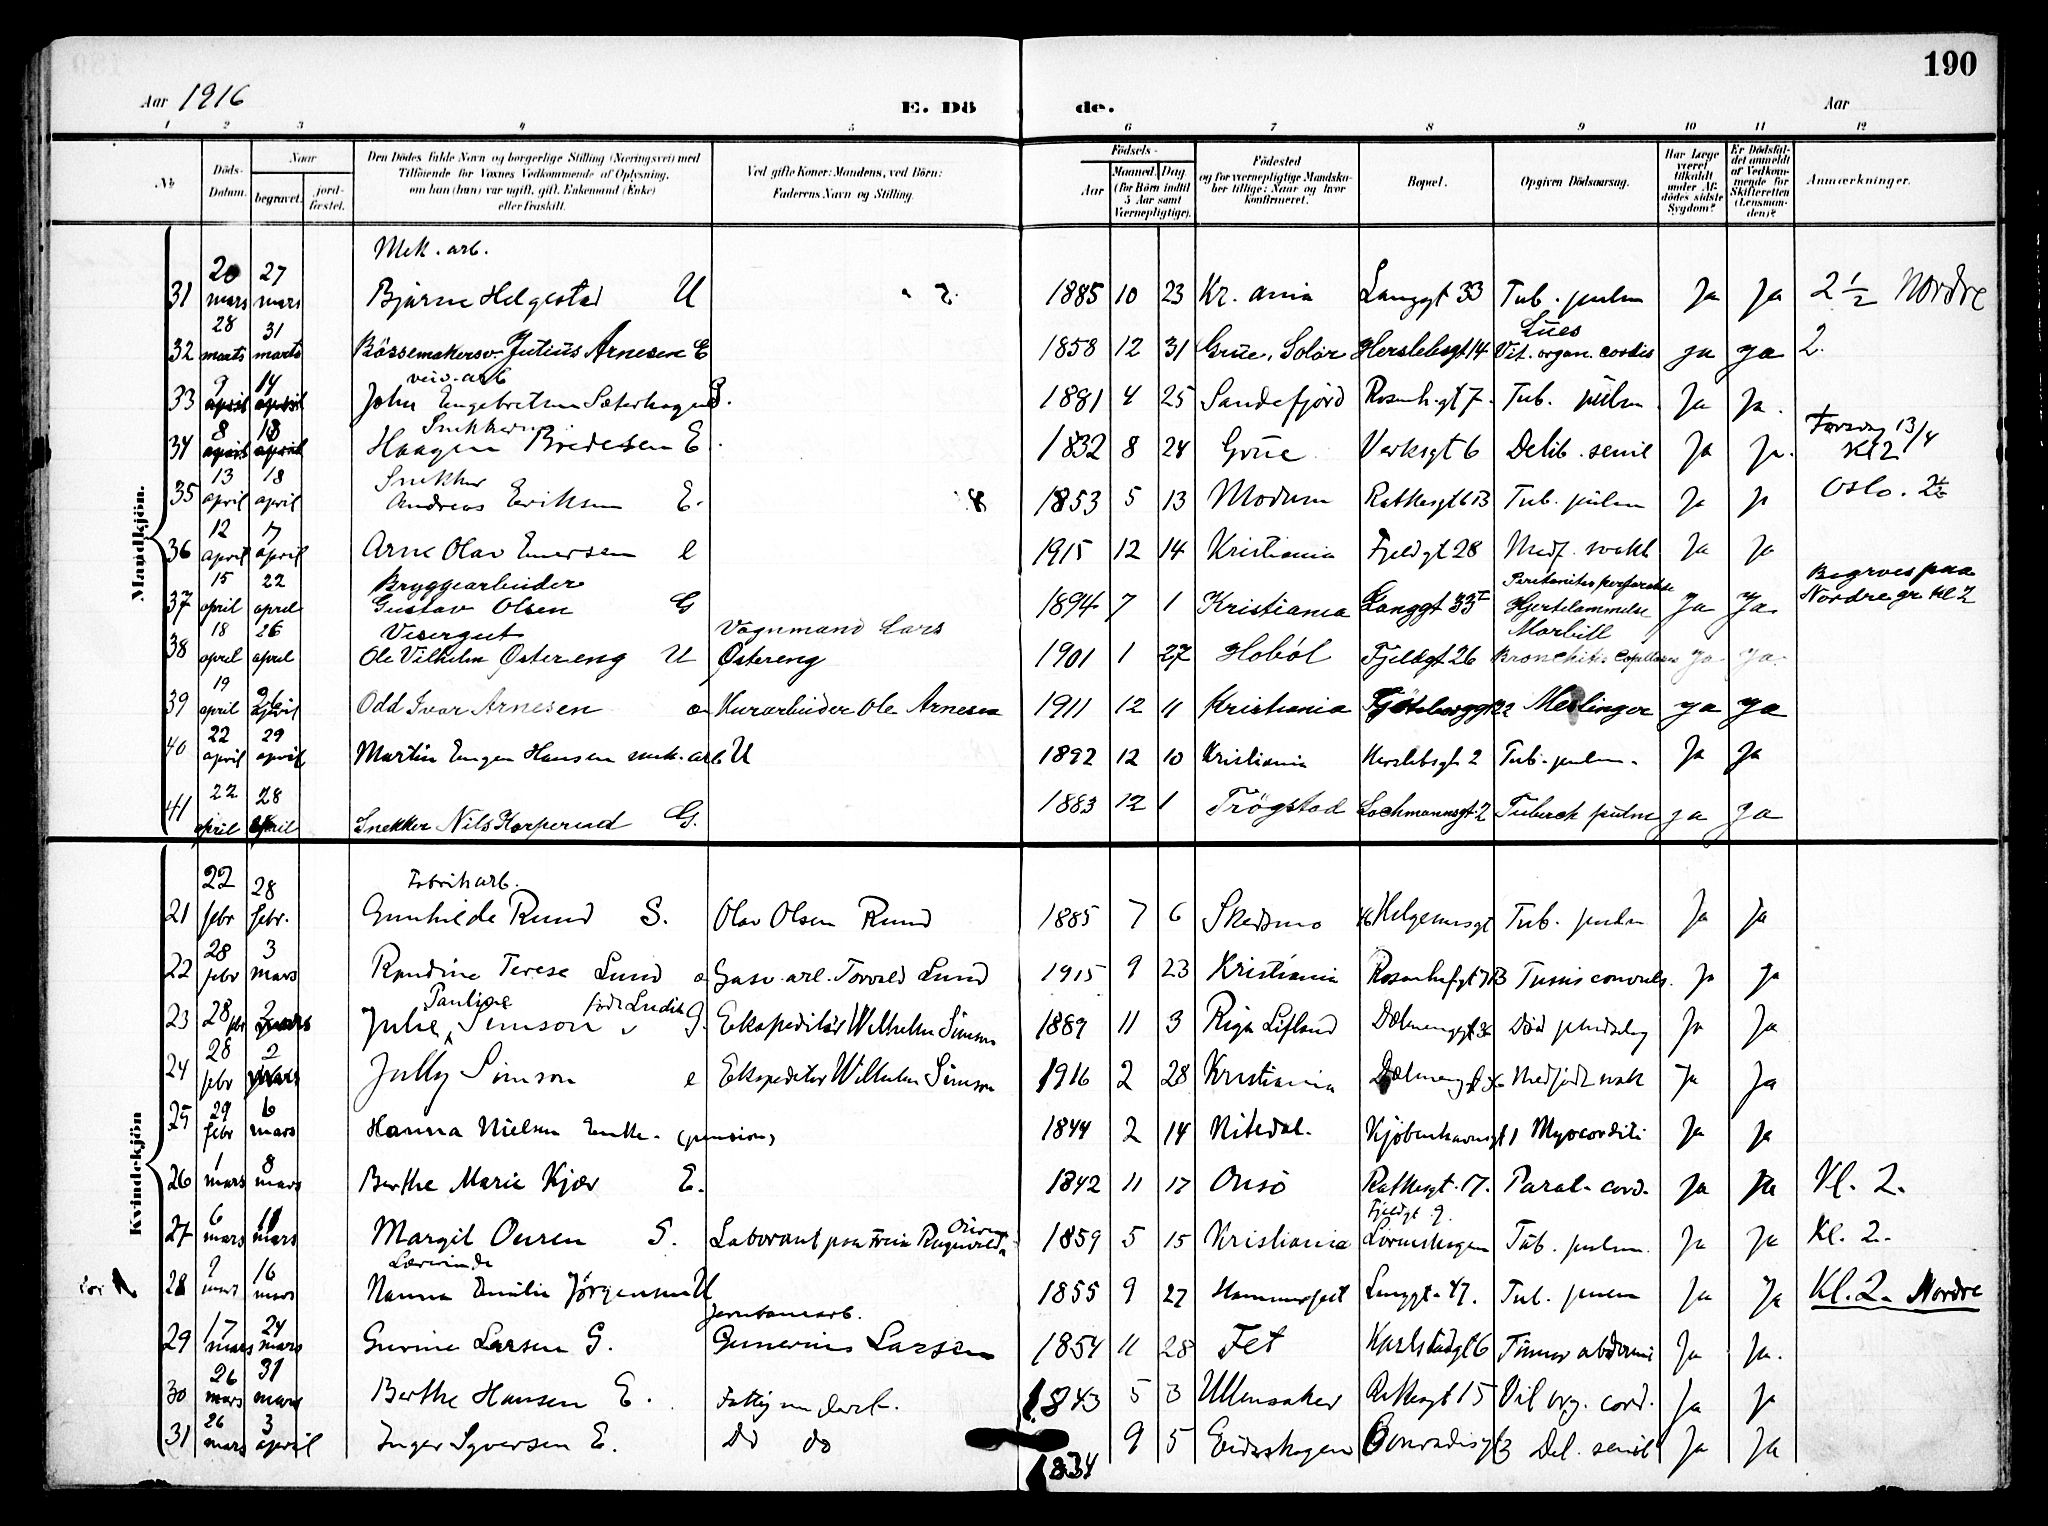 190
Aar 1916 E. Dö de. Aar
1 2 3 4 5 6 7 8 9 10 11 12
No.
Döds-Datum.
Naar begravet. jordfæstet.
Den Dödes fulde Navn og borgerlige Stilling (Næringsvei) med Tilföiende for Voxnes Vedkommende af Oplysning, om han (hun) var ugift, gift, Enkemand (Enke) eller fraskilt.
Ved gifte Koner: Mandens, ved Börn: Faderens Navn og Stilling.
Födsels-
Aar Maaned. Dag (for Börn indtil 5 Aar samt Værnepligtige).
Födested og for værnepligtige Mandskaber tillige: Naar og hvor konfirmeret.
Bopæl.
Opgiven Dödsaarsag.
Har Læge været tilkaldt under Afdödes sidste Sygdom?
Er Dödsfaldet anmeldt af Vedkommende for Skifteretten (Lensmanden)?
Anmærkninger.
Mandkjön.
Mek. arb.
31 20 mars 27 mars Bjarne Helgestad U 1885 10 23 Kr.ania Langgt 33 Tub. pulm Ja Ja 2 1/2 Nordre
Lues
32 28 marts 31 marts Bössemakersv. Julius Arnesen E 1858 12 31 Grue, Solör Herslebsgt 14 Vit. organ. cordis ja ja 2.
veiv. arb
33 9 april 14 april John Engebretsen Sæterhagen 1881 4 25 Sandefjord Rosenh.gt 7. Tub. pulm Ja Ja.
Snekker
34 8 april 13 april Haagen Bredesen E. 1832 8 24 Grue Verksgt 6 Debil. senil Ja Ja. Torsdag 13/4 Kl 2
Snekker
35 13 april 18 april Andreas Eriksen E. 1853 5 13 Modum Ratkesgt 6B Tub. pulm Ja Ja Oslo. 2 1/2
36 12 april 17 april Arne Olav Emersen e 1915 12 14 Kristiania Fjeldgt 28 Medf. svakh Ja Ja
Bryggearbeider
37 15 april 22 april Gustav Olsen G 1894 7 1 Kristiania Langgt 33 I Peritonitis perforativ Hjertelammelse Ja Ja Begraves paa Nordre gr kl 2
Visergut Vognmand Lars Morbilli
38 18 april 26 april Ole Vilhelm Östereng U Östereng 1901 1 27 Hoböl Fjeldgt 26 Bronchitis Capillaris ja ja.
39 19 april 26 april Odd Ivar Arnesen Murarbeider Ole Arnesen 1911 12 11 Kristiania Göteborggt 22 Meslinger ja ja
40 22 april 29 april Martin Eugen Hansen mek. arb U 1892 12 10 Kristiania Herslebsgt 2 Tub. pulm. Ja Ja
41 22 april 28 april Snekker Nils Korperud G. 1883 12 1 Trögstad Lochmannsgt 2 Tuberk pulm ja ja
Kvindekjön
Fabrikarb.
21 22 febr 28 febr. Gunhilde Rund S. Olav Olsen Rund 1885 7 6 Skedsmo 46 Helgesensgt Tub. pulm Ja Ja
22 28 febr 3 mars Randine Terese Lund Gasv. arb. Torvald Lund 1915 9 23 Kristiania Tussis convuls. Ja Ja
Pauline
23 28 febr 2 mars Julie Simson G. Ekspeditör Wilhelm Simson 1889 11 3 Riga Lifland Dælenenggt 36 Ja Ja
24 28 febr 2 mars Jully Simson e Ekspeditör Wilhelm Simson 1916 2 28 Kristiania Dælenenggt 36 Medfödt svak Ja Ja
25 29 febr 6 mars Hanna Nielsen Enke. (pension) 1844 2 14 Nitedal. Kjöbenhavnsgt 1 Myocorditi Ja Ja
26 1 mars 8 mars Berthe Marie Kjær E. 1842 11 17 Onsö Ratkesgt. 17. Paral. cord. Ja Ja Kl. 2.
Fjeldgt 9.
27 6 mars 11 mars Margit Ouren S. Laborant paa Freia Ragnvald Ouren 1859 5 15 Kristiania Lörenskogen Tub. pulm. Ja Ja Kl. 2.
Lærerinde
28 9 mars 16 mars Nanna Emilie Jörgensen U 1855 9 27 Hammerfest Langgt. 47. Tub. pulm Ja Ja Kl. 2. Nordre
Jernbanearb.
29 17 mars 24 mars Gurine Larsen G. Gunerius Larsen 1854 11 28 Fet Karlstadgt 6 Tumor abdomi Ja Ja.
30 26 mars 31 mars Berthe Hansen E. 1843 5 3 Ullensaker Ratkesgt 15 Vit org. cord. Ja Ja
31 26 mars 3 april Inger Syversen E. Do do 1834 9 5 Eidskogen Conradisgt 3 Del. senil Ja Ja